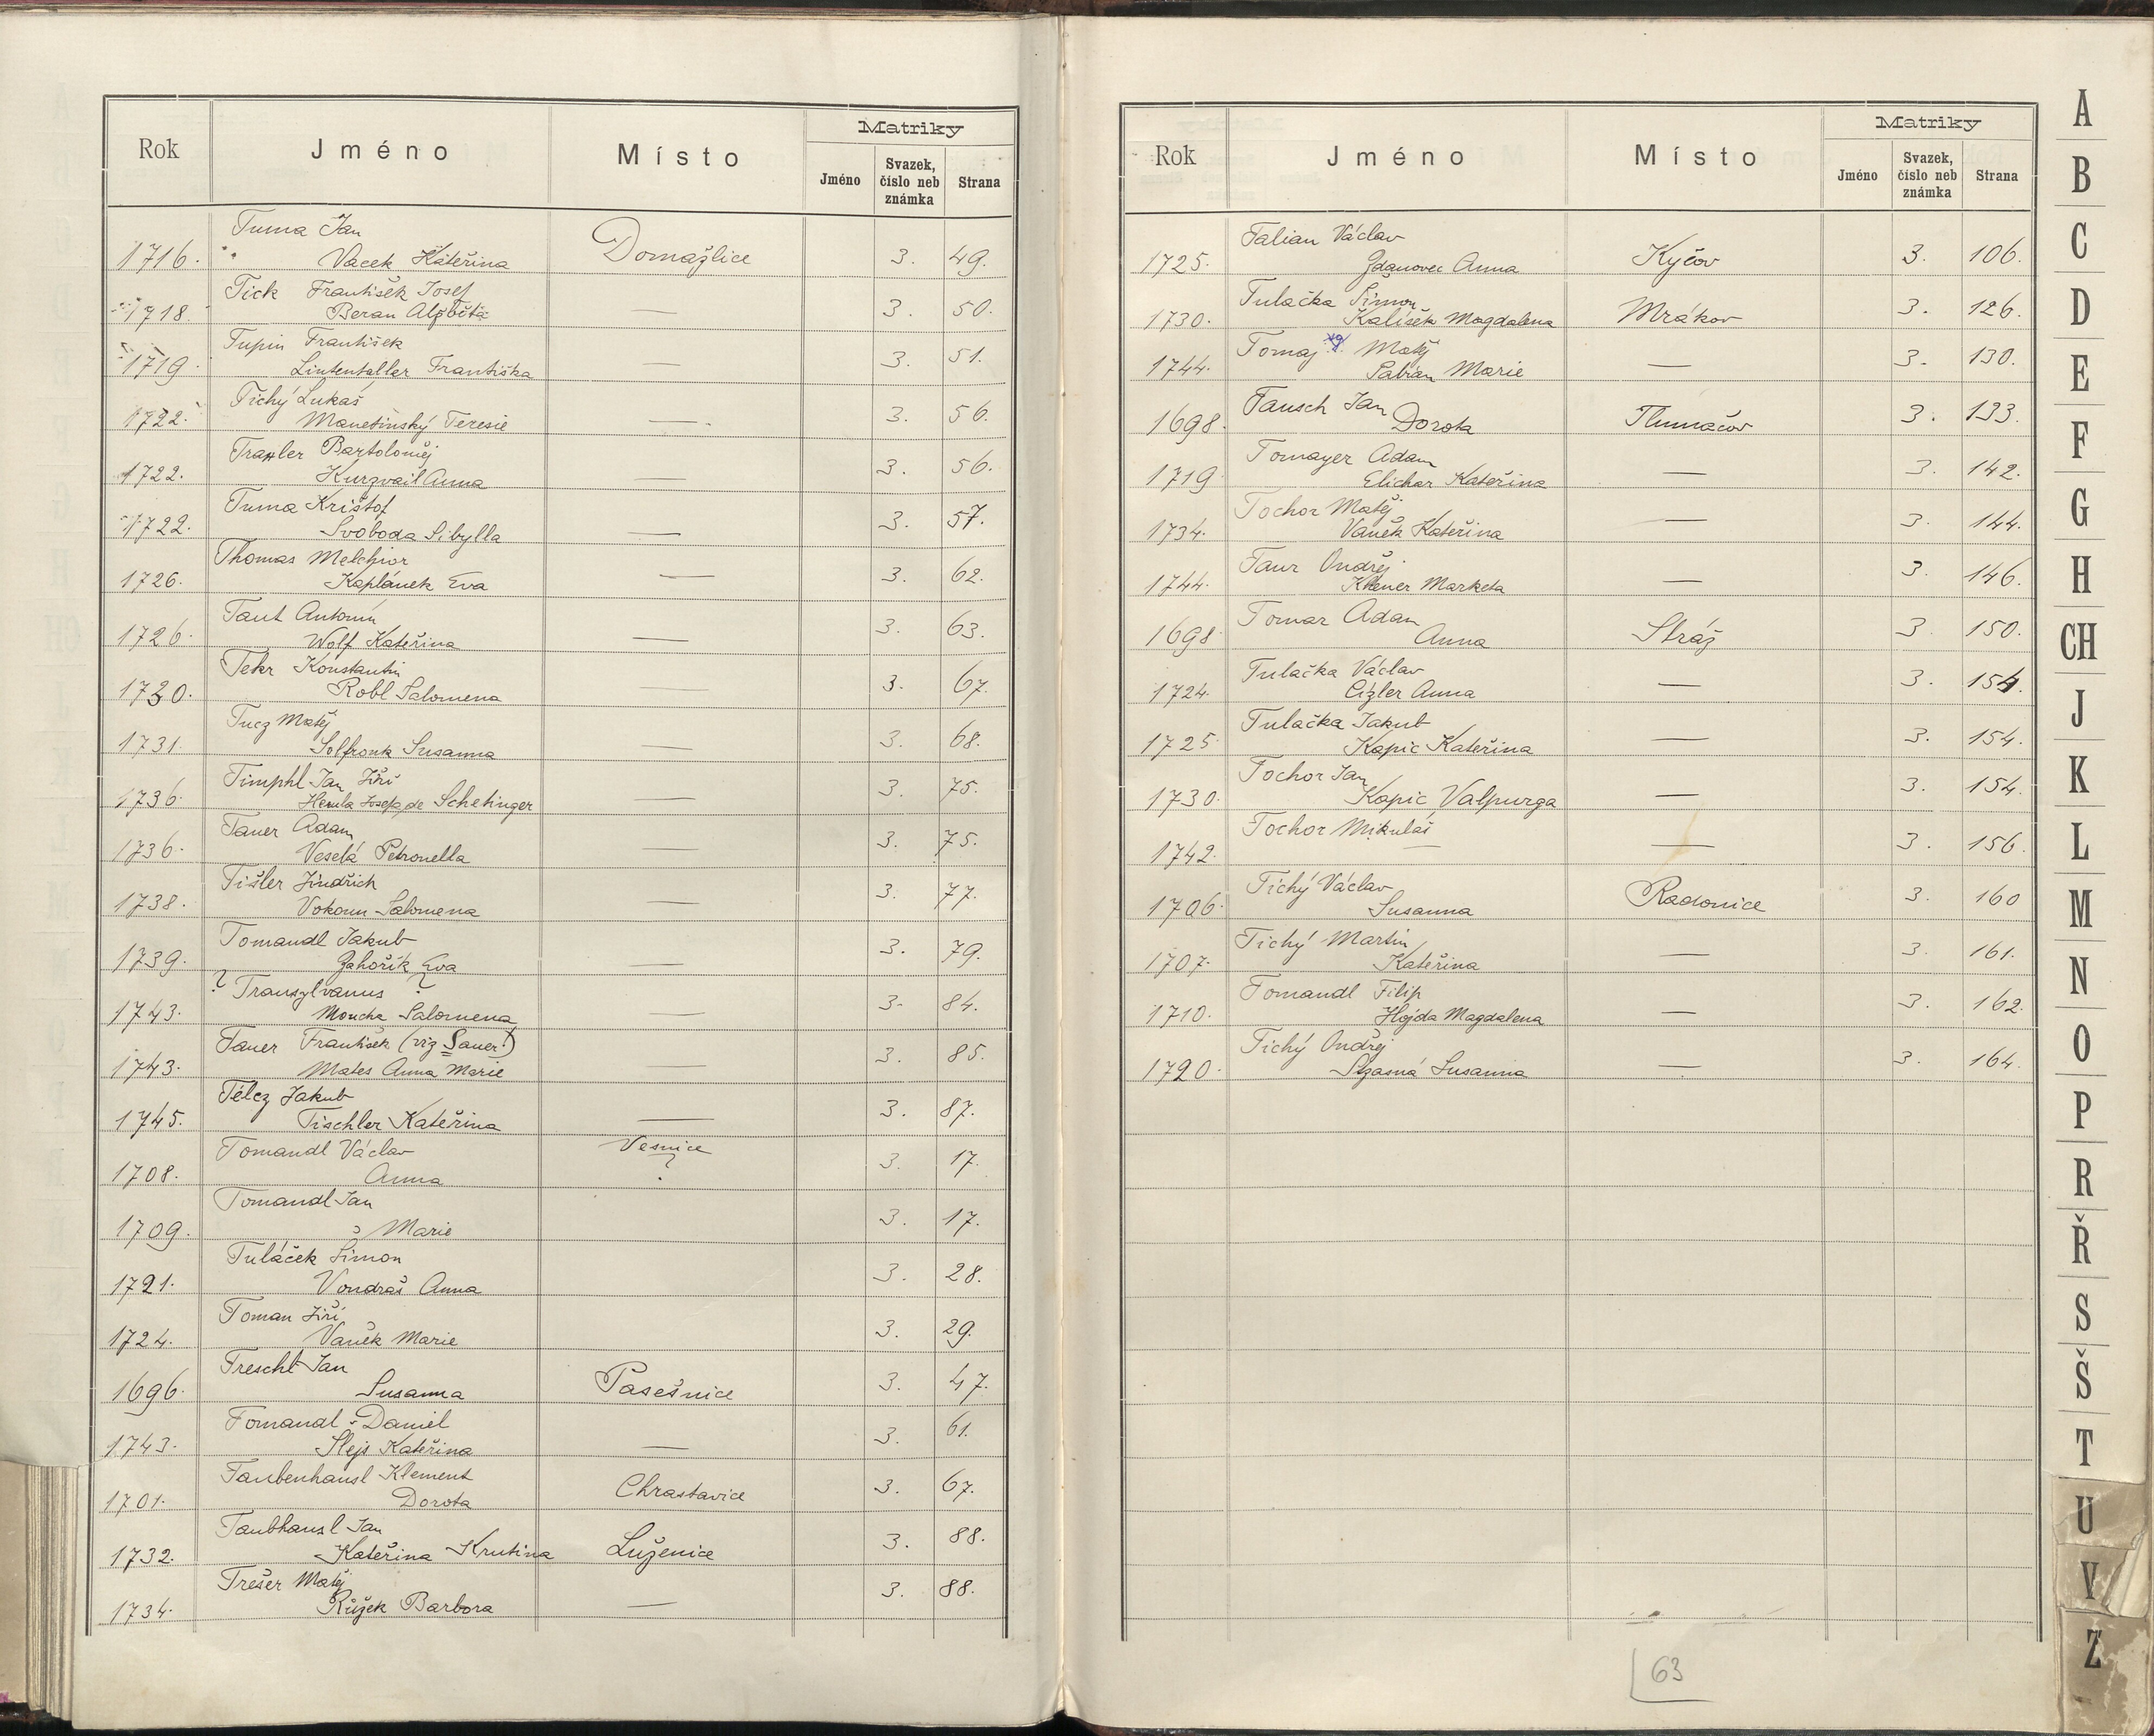 Rok Jméno Místo Matriky
Jméno Svazek, číslo neb známka Strana
Tuma Jan
1716. Vacek Kateřina Domažlice 3. 49.
Tick František Josef
1718. Beran Alžběta — 3. 50.
Tupin František
1719. Lintentaller Františka — 3. 51.
Tichý Lukáš
1722. Manetinský Teresie — 3. 56.
Bartoloměj
1722. Kurzvail Anna — 3. 56.
Tuma Krištof
1722. Svoboda Sibylla — 3. 57.
Thomas Melchior
1726. Kaplánek Eva — 3. 62.
Taut Antonín
1726. Wolf Kateřina — 3. 63.
Tekr Konstantin
1730. Robl Salomena — 3. 67.
Tucz Matěj
1731. Solfronk Susanna — 3. 68.
Timphl Jan Jiří
1736. Josefa de Schetinger — 3. 75.
Tauer Adam
1736. Veselá Petronella — 3. 75.
Tišler Jindřich
1738. Vokoun Salomena — 3. 77.
Tomandl Jakub
1739. Zahořík Eva — 3. 79.
? Transylvanus ?
1743. Moucha Salomena — 3. 84.
Tauer František (viz Sauer!)
1743. Mates Anna Marie — 3. 85.
Telcz Jakub
1745. Tischler Kateřina — 3. 87.
Tomandl Václav Vesnice
1708. Anna ? 3. 17.
Tomandl Jan
1709. Marie 3. 17.
Tuláček Šimon
1721. Vondraš Anna 3. 28.
Toman Jiří
1724. Vaněk Marie 3. 29.
Treschl Jan
1696. Susanna Pasešnice 3. 47.
Tomandl Daniel
1743. Šlejs Kateřina — 3. 61.
Taubenhansl Klement
1701. Dorota Chrastavice 3. 67.
Taubhansl Jan
1732. Kateřina Krutina Luženice 3. 88.
Trešer Matěj
1734. Růžek Barbora — 3. 88.
Rok Jméno Místo Matriky
Jméno Svazek, číslo neb známka Strana
Talian Václav
1725. Zdanovec Anna Kyčov 3. 106.
Tulačka Šimon
1730. Kalíšek Magdalena Mrákov 3. 126.
Tomaj Matěj
1744. Marie — 3. 130.
Tausch Jan
1698. Dorota Tlumačov 3. 133.
Tomayer Adam
1719. Elichar Kateřina — 3. 142.
Tochor Matěj
1734. Vaněk Kateřina — 3. 144.
Taur Ondřej
1744. Marketa — 3. 146.
Tomar Adam
1698. Anna Stráž 3. 150.
Tulačka Václav
1724. Cizler Anna — 3. 154.
Tulačka Jakub
1725. Kapic Kateřina — 3. 154.
Tochor Jan
1730. Kapic Valpurga — 3. 154.
Tochor Mikuláš
1742. — — 3. 156.
Tichý Václav
1706. Susanna Radonice 3. 160
Tichý Martin
1707. Kateřina — 3. 161.
Tomandl Filip
1710. Hojda Magdalena — 3. 162.
Tichý Ondřej
1720. Susanna — 3. 164.
63
A
B
C
D
E
F
G
H
CH
J
K
L
M
N
O
P
R
Ř
S
Š
T
U
V
Z